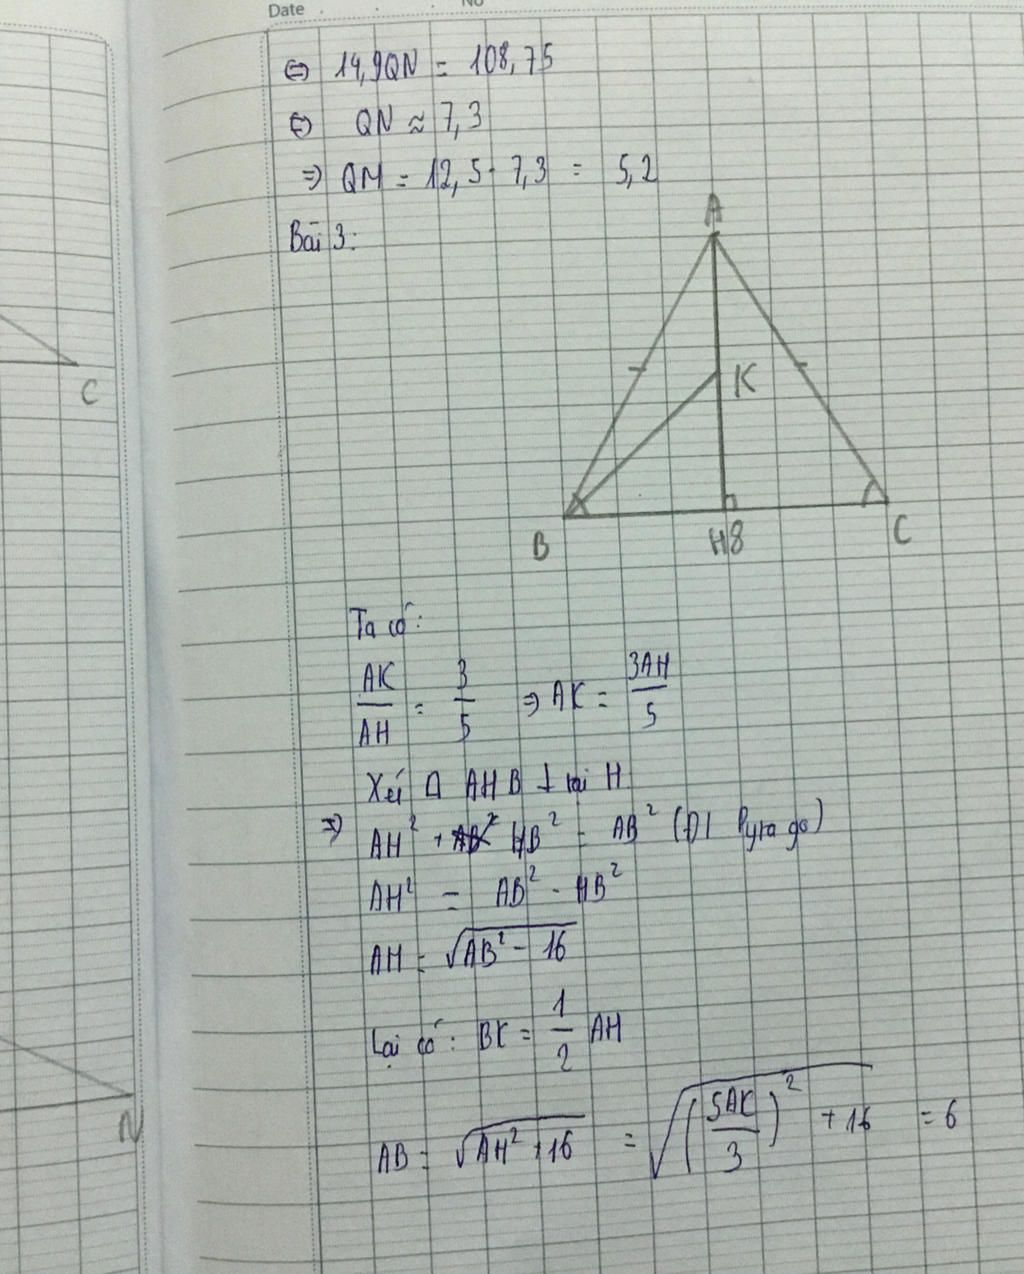 Date No
⇔ 14,9QN = 108,75
⇔ QN ≈ 7,3
⇒ QM = 12,5 - 7,3 = 5,2
Bài 3:
A
K
C
B
H 8
C
Ta có:
AK/AH = 3/5 ⇒ AK = 3AH/5
Xét Δ AHB ⊥ tại H
⇒ AH² + HB² = AB² (Đl Pytago)
AH² = AB² - HB²
AH = √(AB² - 16)
Lại có: BK = 1/2 AH
AB = √(AH² + 16) = √((5AK/3)² + 16) = 6
N